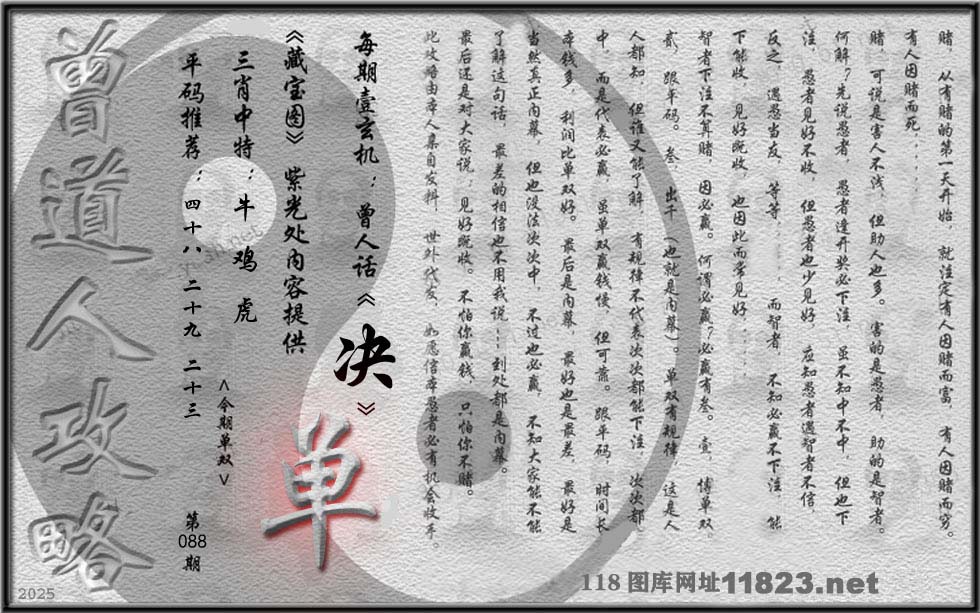 赌，从有赌的第一天开始，就注定有人因赌而富，有人因赌而穷。
有人因赌而死......
赌，可说是害人不浅，但助人也多。害的是愚者，助的是智者。
何解？先说愚者，愚者逢开奖必下注，虽不知中不中，但也下
注，愚者见好不收，但愚者也少见好，应知愚者遇智者不信，
反之，遇愁当友，等等......而智者，不知必赢不下注，能
下能收，见好既收，也因此而常见好......
智者下注不算赌，因必赢。何谓必赢？必赢有叁。壹，博单双，
贰，跟平码。叁，出千（也就是内幕）。单双有规律，这是人
人都知，但谁又能了解，有规律不代表次次都能下注，次次都
中，而是代表必赢，虽单双赢钱慢，但可靠。跟平码，时间长
本钱多，利润比单双好。最后是内幕，最好也是最差，最好是
当然真正内幕，但也没法次次中，不过也必赢，不知大家能不能
了解这句话，最差的相信也不用我说......到处都是内幕。
最后还是对大家说：见好既收。不怕你赢钱，只怕你不赌。
此攻略由本人集自发料，世外代友，如愿信本愚者必有机会收手。
每期壹玄机：曾人话《决》
《藏宝图》紫光处内容提供
三肖中特：牛 鸡 虎
平码推荐：四十八 二十九 二十三
<今期单双>
单
第088期
曾道人攻略
2025
118图库网址11823.net